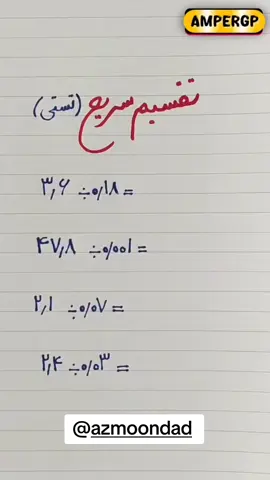 AMPERGP
تقسیم سریع (تستی)
۳٫۶ ÷ ۰٫۱۸ =
۴۷٫۸ ÷ ۰٫۰۰۱ =
۲٫۱ ÷ ۰٫۰۷ =
۲٫۴ ÷ ۰٫۰۳ =
@azmoondad